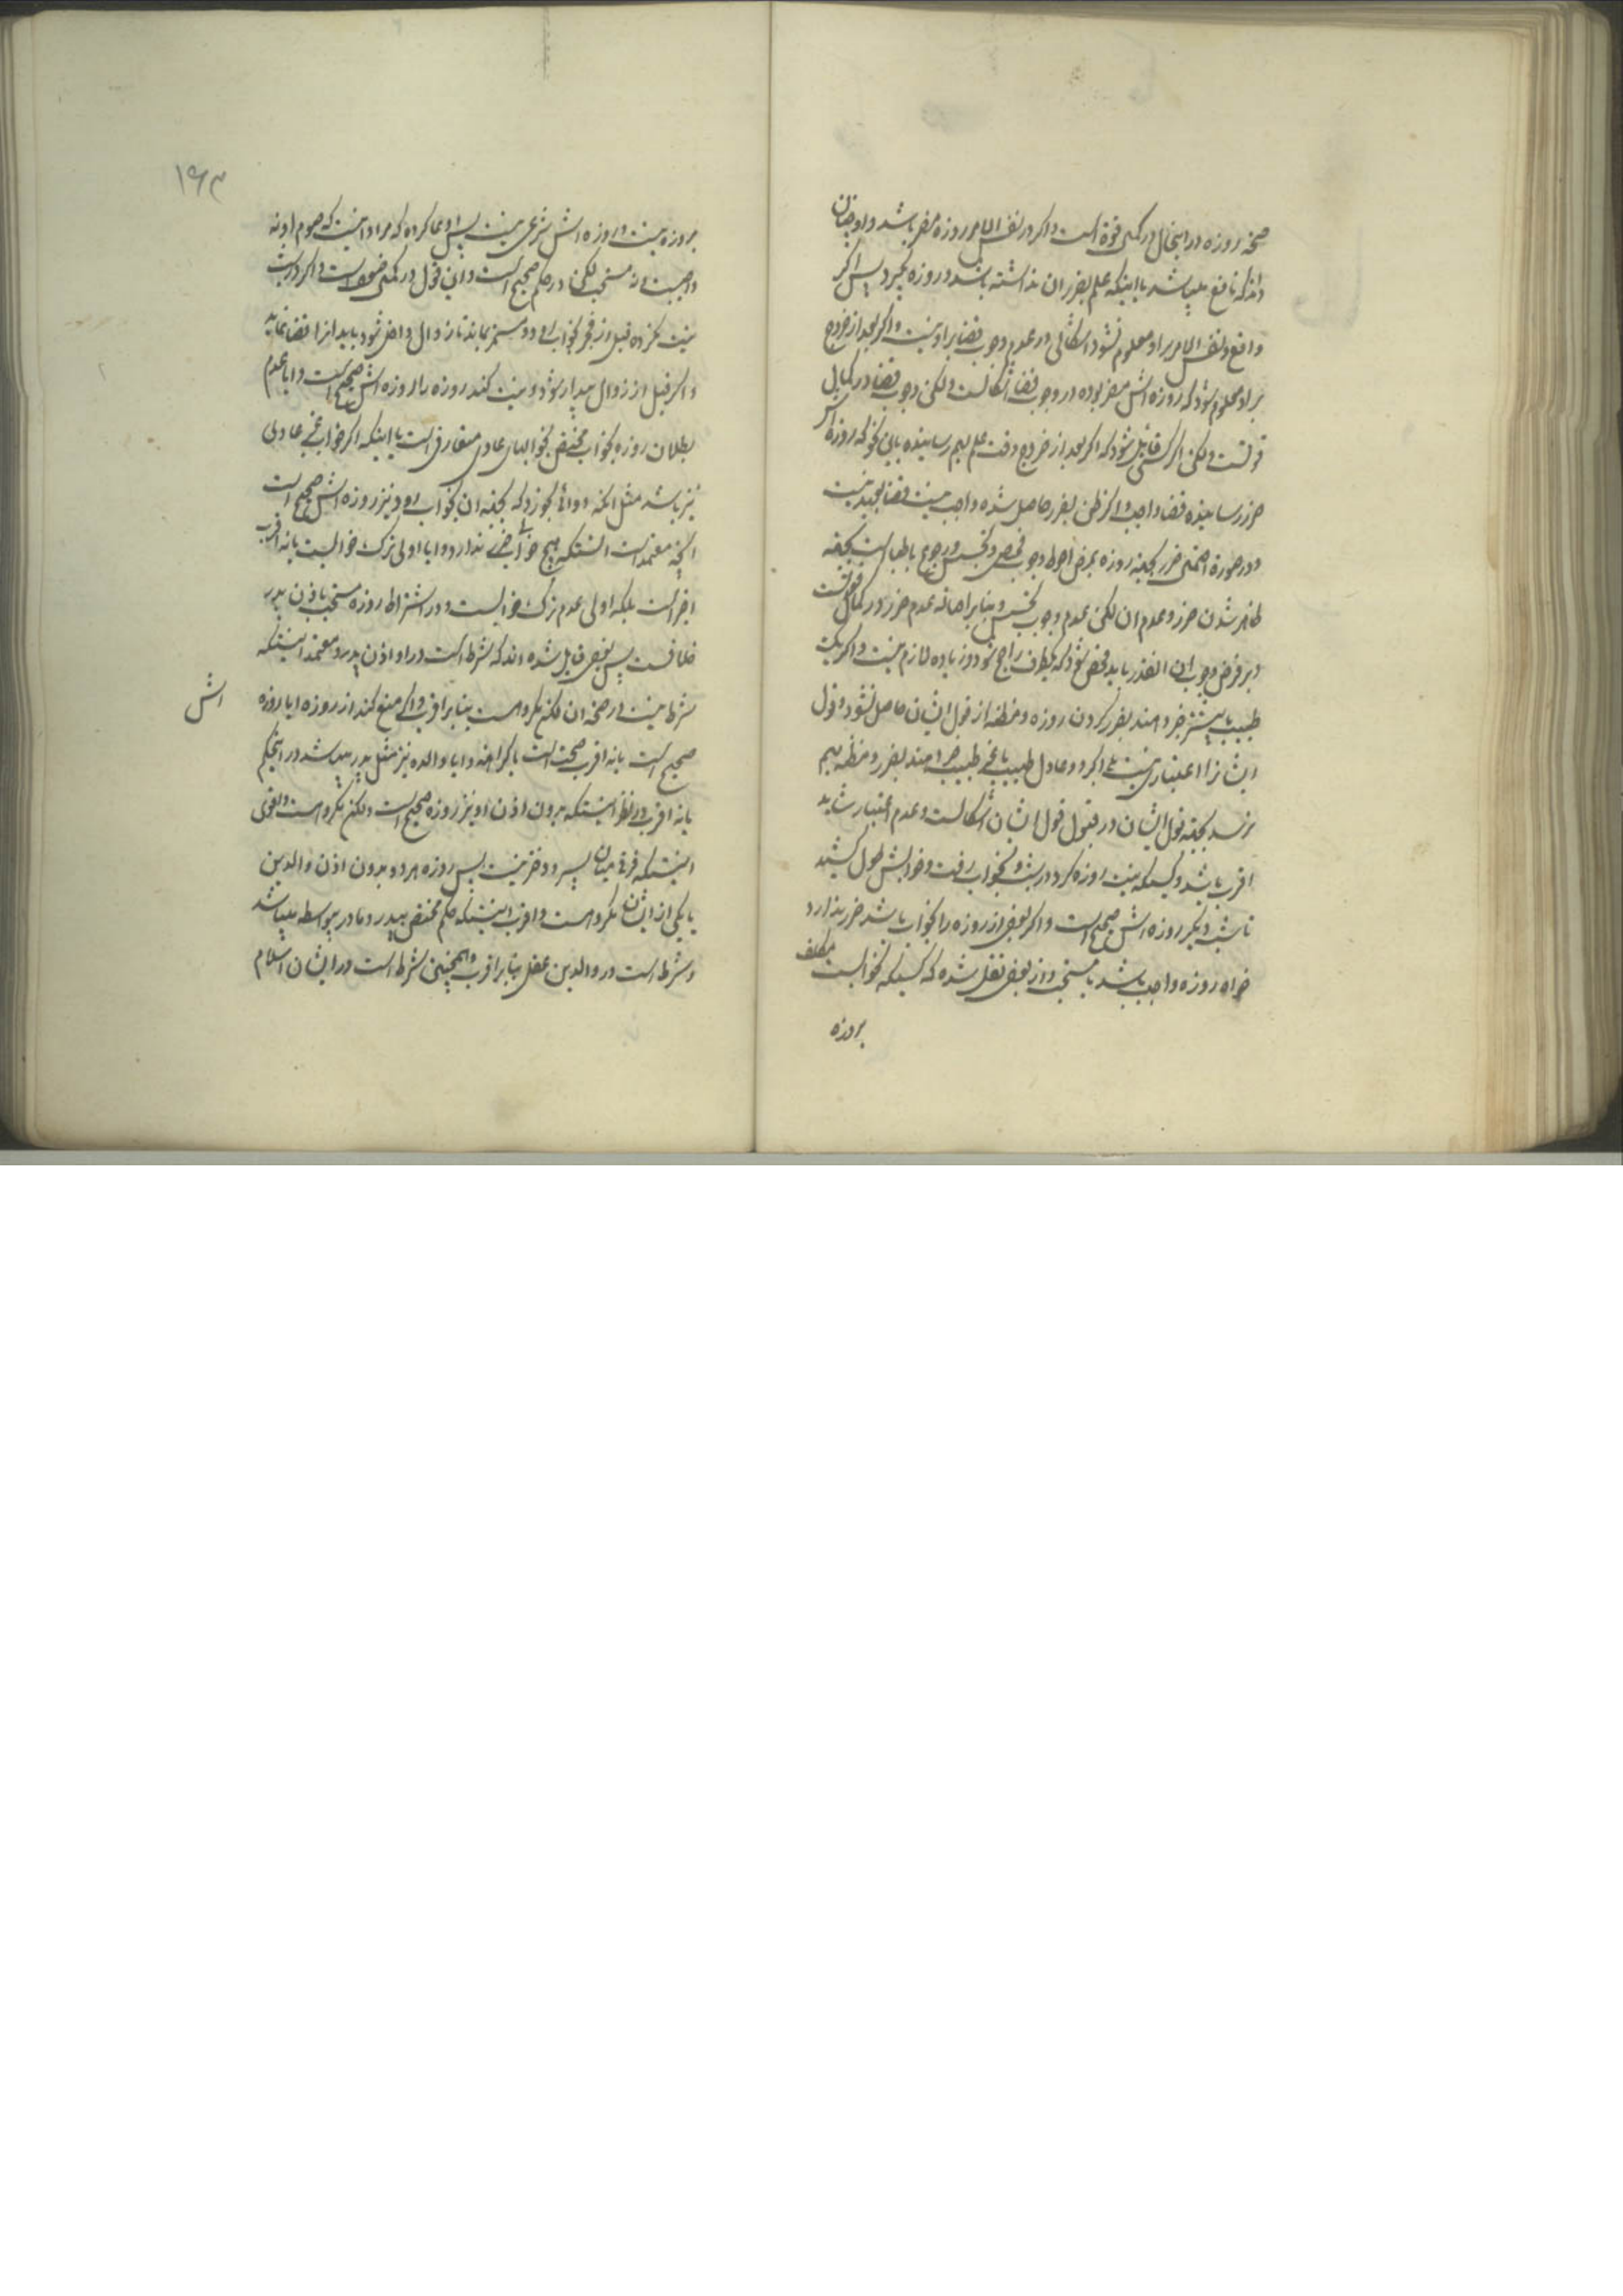 صحة روزه در اینحال در کمال قوة است و اکر در نفس الامر روزه مضر باشد و او چنان
داند که نافع میباشد یا اینکه علم بضرر ان نداشته باشد و روزه بکیرد پس اکر
واقع و نفس الامر بر او معلوم نشود اشکالی در عدم وجوب قضا بر او نیست و اکر بعد از خروج
بر او معلوم شود که روزه اش مضر بوده در وجوب قضا اشکالست و لکن وجوب قضا در کمال
قوتست و لکن اکر کسی قائل شود که اکر بعد از خروج وقت علم بهم رسانیده باین نحو که روزه اش
ضرر رسانیده قضا واجب و اکر ظن بضرر حاصل شده واجب نیست قضا بعید نیست
و در صورة احتمال ضرر بجهة روزه بمرض احوط وجوب فحص و تجسس و رجوع باطباست بجهة
ظاهر شدن ضرر و عدم ان لکن عدم وجوب تجسس بنا بر اصالة عدم ضرر در کمال قوتست
و بر فرض وجوب ان انقدر باید فحص شود که یکطرف راجح شود و زیاده لازم نیست و اکر یک
طبیب یا بیشتر خبر دهند بضرر کردن روزه و مظنه از قول ایشان حاصل نشود قول
ایشانرا اعتباری نیست بلی اکر دو عادل طبیب یا غیر طبیب خبر دهند بضرر و مظنه بهم
نرسد بجهة قول ایشان در قبول قول ایشان اشکالست و عدم اعتبار شاید
اقرب باشد و کسیکه نیت روزه کرد در شب و بخواب رفت و خوابش طول کشید
تا شب دیکر روزه اش صحیح است و اکر بعض از روزه را بخواب باشد ضرر ندارد
خواه روزه واجب باشد یا مستحب و از بعض نقل شده که کسیکه بخوابست مکلف
بروزه
۱۶۳
بروزه نیست و روزه اش شرعی نیست پس ادعا کرده که مراد اینست که صوم او نه
واجبست و نه مستحب لکن در حکم صحیح است و این قول در کمال ضعف است و اکر در شب
نیت نکرده قبل از فجر بخواب رود و مستمر بماند تا زوال داخل شود باید انرا قضا نماید
و اکر قبل از زوال بیدار شود و نیت کند روزه را روزه اش صحیح است و ایا عدم
بطلان روزه بخواب مختص بخوابهای عادی متعارفی است یا اینکه اکر خواب غیر عادی
نیز باشد مثل انکه دوائی بخورد که بجهة ان بخواب رود نیز روزه اش صحیح است
انچه معتمد است انستکه هیچ خوابی ضرر ندارد و ایا اولی ترک خوابست یا نه اقرب
اخر است بلکه اولی عدم ترک خوابست و در اشتراط روزه مستحب باذن پدر
خلافست پس بعضی قایل شده اند که شرط است در او اذن پدر و معتمد اینستکه
شرط نیست در صحة ان لکن مکروهست بنا بر اقرب و اکر منع کند از روزه ایا روزه
اش
صحیح است یا نه اقرب صحت است با کراهة و ایا والده نیز مثل پدر میباشد در اینحکم
یا نه اقرب در نظر اینستکه بدون اذن او نیز روزه صحیح است و لکن مکروهست و اقوی
اینستکه فرقی میان پسر و دختر نیست پس روزه هر دو بدون اذن والدین
یا یکی از ایشان مکروهست و اقرب اینستکه حکم مختص بپدر و مادر بیواسطه میباشد
و شرط است در والدین عقل بنا بر اقرب و همچنین شرط است در ایشان اسلام